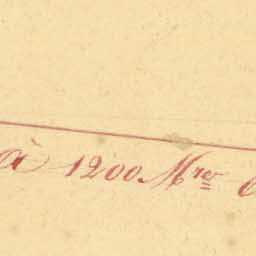 à 1200 Mres